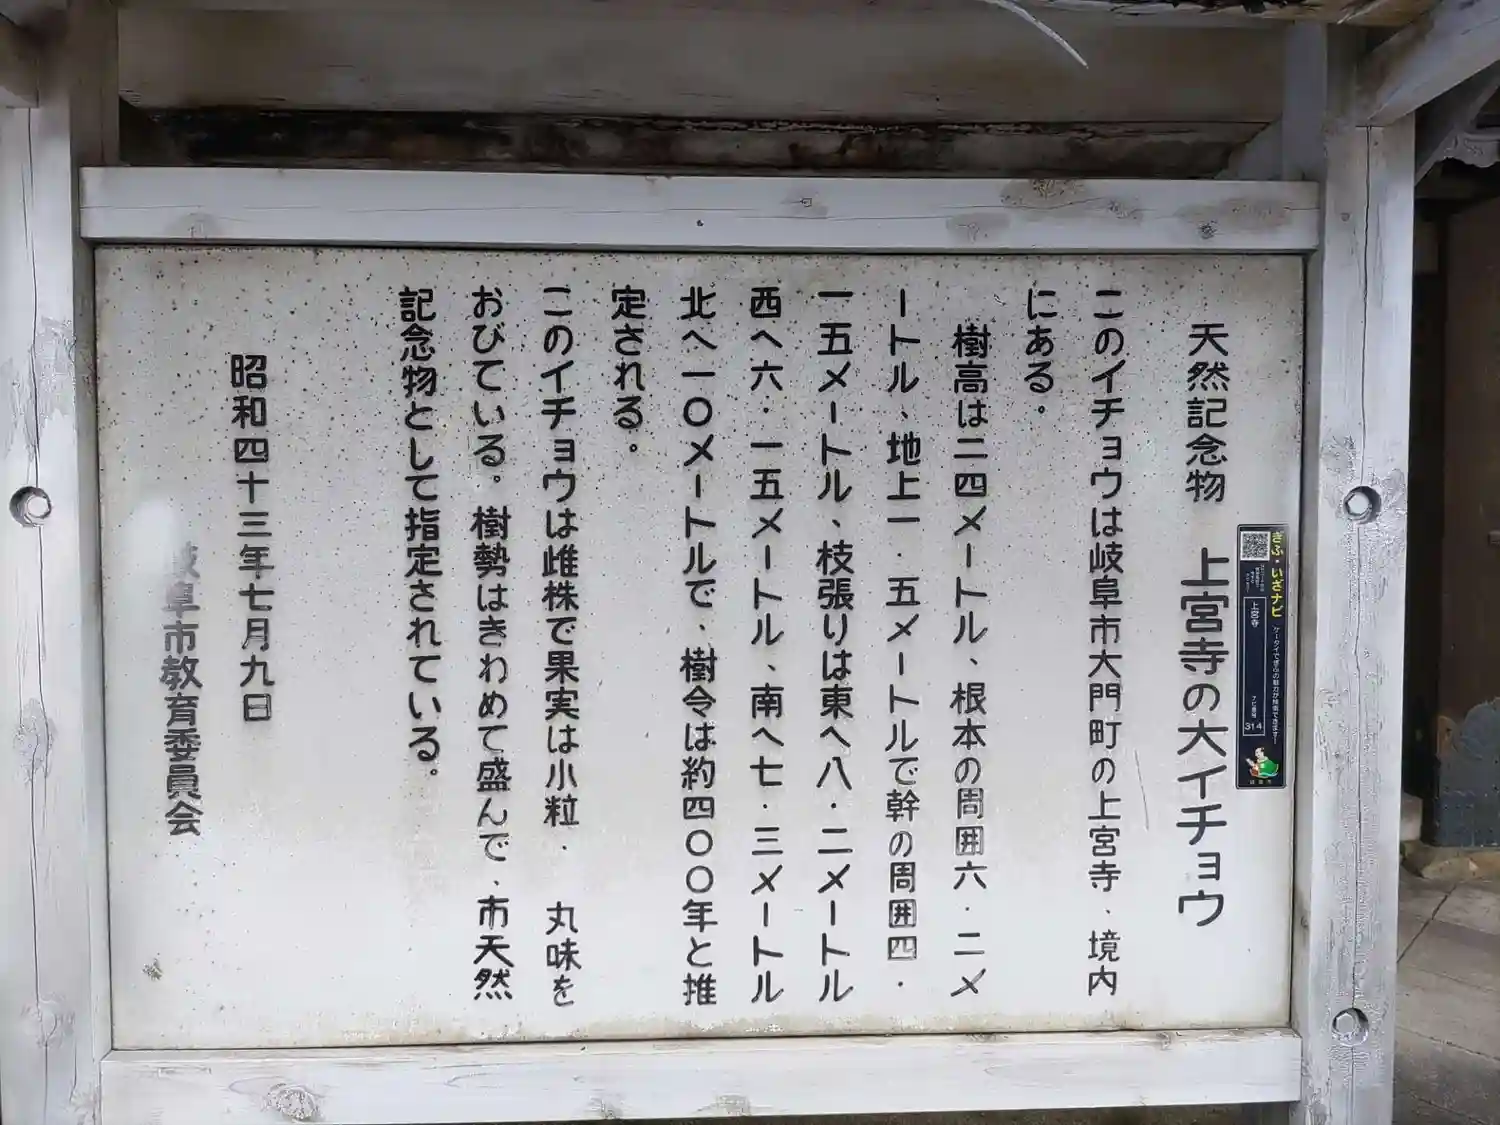 天然記念物　上宮寺の大イチョウ
このイチョウは岐阜市大門町の上宮寺、境内
にある。
樹高は二四メートル、根本の周囲六・二メ
ートル、地上一・五メートルで幹の周囲四・
一五メートル、枝張りは東へ八・二メートル
西へ六・一五メートル、南へ七・三メートル
北へ一〇メートルで、樹令は約四〇〇年と推
定される。
このイチョウは雌株で果実は小粒、丸味を
おびている。樹勢はきわめて盛んで、市天然
記念物として指定されている。
昭和四十三年七月九日
岐阜市教育委員会
ぎふ・いざナビ
上宮寺
314